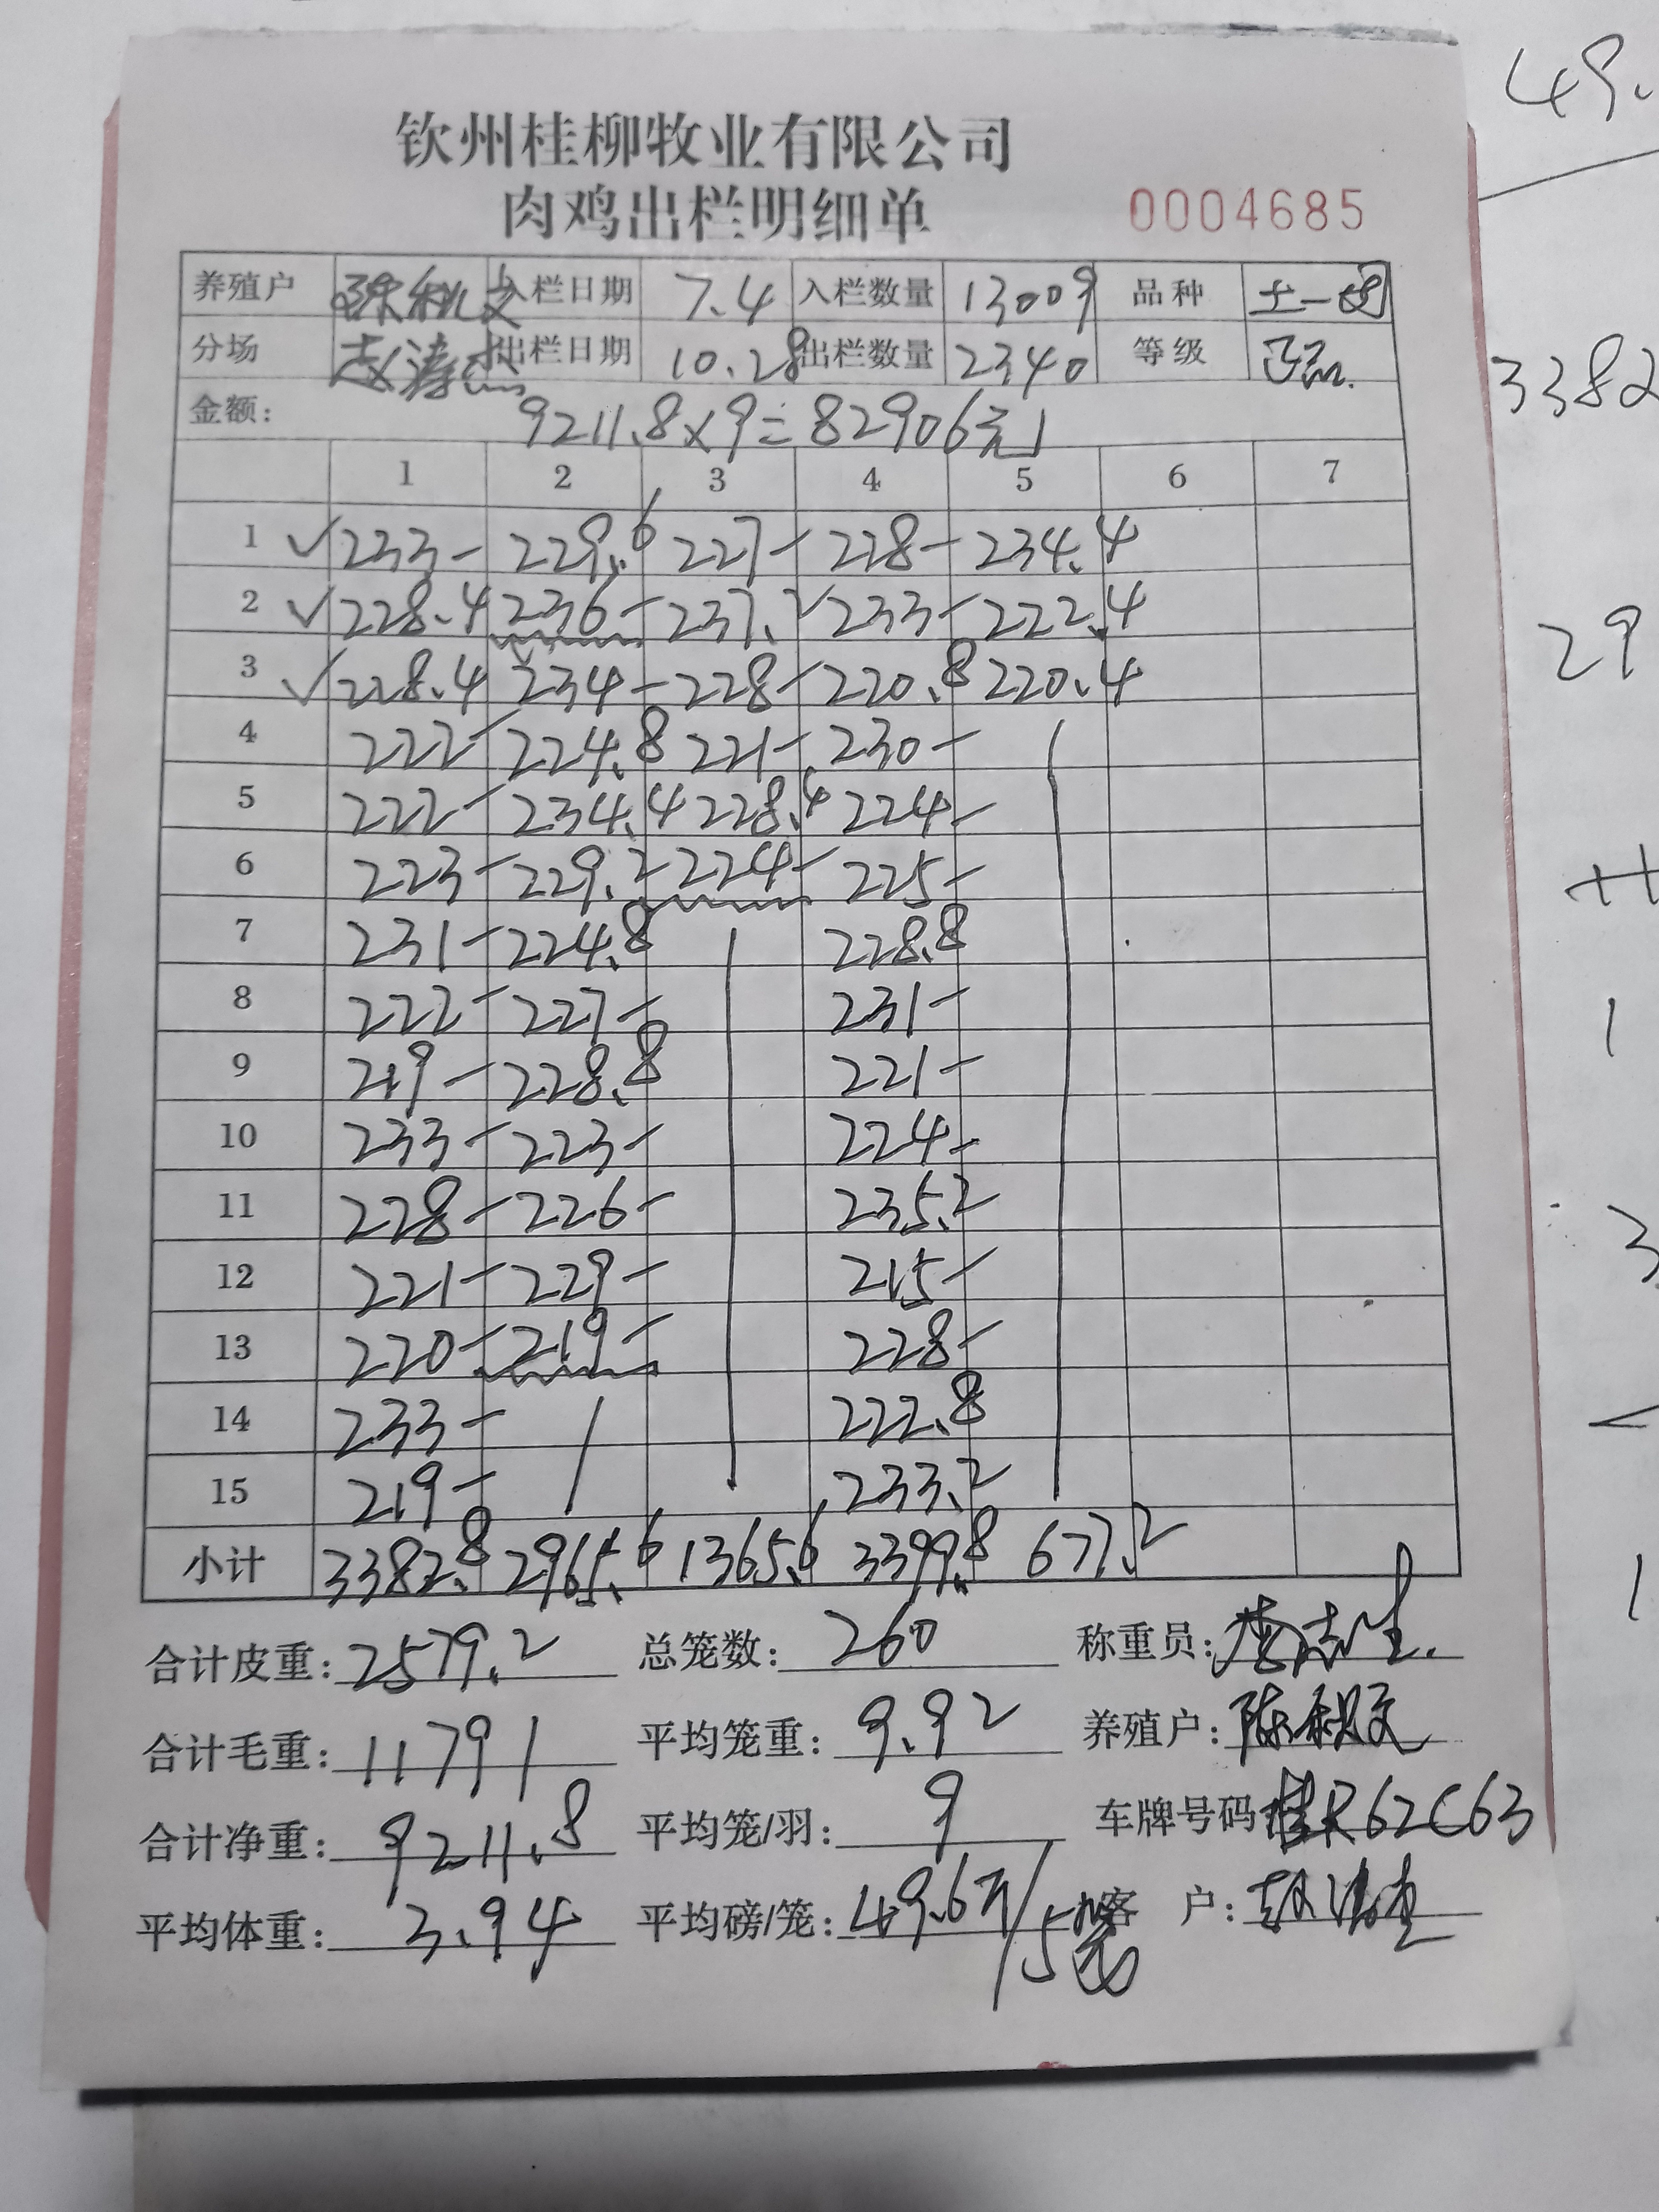 钦州桂柳牧业有限公司
肉鸡出栏明细单 0004685
养殖户 入栏日期 7.4 入栏数量 13009 品种
分场 出栏日期 10.28 出栏数量 2340 等级 正品.
金额: 9211.8×9=82906元
1 2 3 4 5 6 7
1 ✓ 233- 229.6 227- 228- 234.4
2 ✓ 228.4 236- 237.2 233- 222.4
3 ✓ 228.4 234- 228- 220.8 220.4
4 222- 224.8 221- 230-
5 222- 234.4 228.4 224-
6 223- 229.2 224- 225-
7 231- 224.8 228.8
8 222- 227- 231-
9 219- 228.8 221-
10 233- 223- 224-
11 228- 226- 235.2
12 221- 229- 215-
13 220- 219- 228-
14 233- 222.8
15 219- 233.2
小计 3382.8 2965.6 1365.6 3399.8 677.2
合计皮重: 2579.2 总笼数: 260 称重员:
合计毛重: 11791 平均笼重: 9.92 养殖户:
合计净重: 9211.8 平均笼/羽: 9 车牌号码 桂R62C63
平均体重: 3.94 平均磅/笼: 49.6斤/5笼 客 户:
49.
3382
29
1
3
1